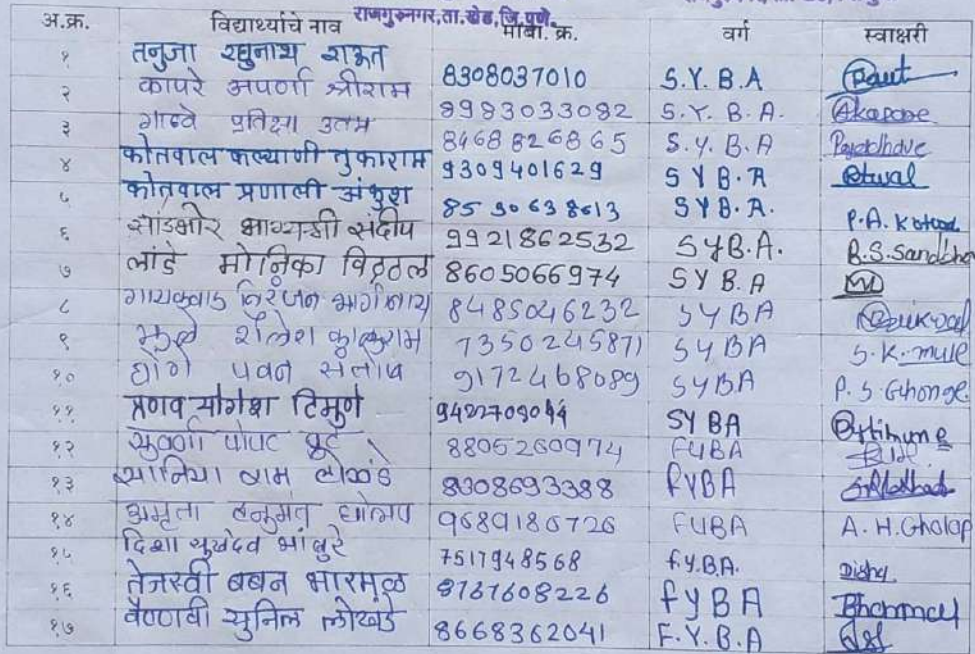 राजगुरुनगर, ता. खेड, जि. पुणे.
अ.क्र. विद्यार्थ्यांचे नाव मोबा. क्र. वर्ग स्वाक्षरी
१ तनुजा रघुनाथ राऊत 8308037010 S.Y.B.A Raut
२ कापरे अपर्णा श्रीराम 9983033082 S.Y.B.A. Akapare
३ गाढवे प्रतिक्षा उत्तम 8468826865 S.Y.B.A
४ कोतवाल कल्याणी तुकाराम 9309401629 SYB.A
५ कोतवाल प्रणाली अंकुश 8590638613 SYB.A. P.A. Kotwal
६ सांडभोर भाग्यश्री संदीप 9921862532 SYB.A. B.S.Sandbhor
७ लांडे मोनिका विठ्ठल 8605066974 SYB.A
८ गायकवाड निरंजन 8485046232 SYBA
९ मुळे शैलेश काळुराम 7350245871 SYBA S.K. mule
१० घोंगे पवन संतोष 9172468089 SYBA P.S Ghonge
११ प्रणव योगेश टिमुणे 9422709044 SYBA
१२ सुवर्णा पोपट 8805260974 FYBA
१३ सानिया राम लोखंडे 8308693388 FYBA
१४ अमृता हनुमंत घोलप 9689186726 FYBA A.H.Gholap
१५ दिशा सुखदेव भांबुरे 7517948568 F.Y.BA. Disha
१६ तेजस्वी बबन भारमळ 8767608226 FYBA Bharmal
१७ वैष्णवी सुनिल लोखंडे 8668362041 F.Y.B.A